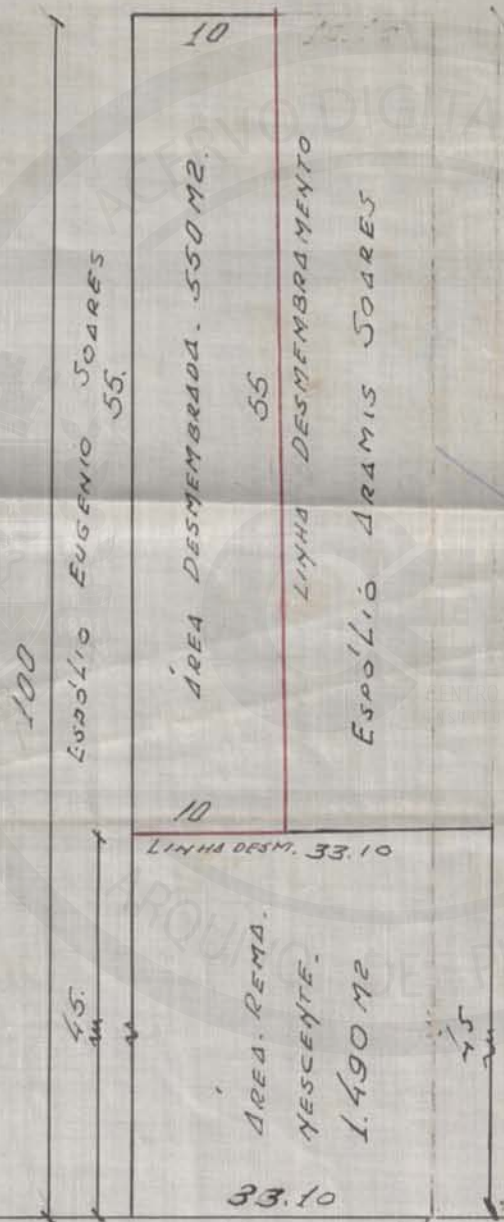 10
ESPÓLIO EUGENIO SOARES
55.
100
ÁREA DESMEMBRADA. 550 M2.
55
LINHA DESMEMBRAMENTO
ESPÓLIO ARAMIS SOARES
10
LINHA DESM. 33.10
45.
ÁREA. REMA.
NESCENTE.
1.490 M2
45
33.10